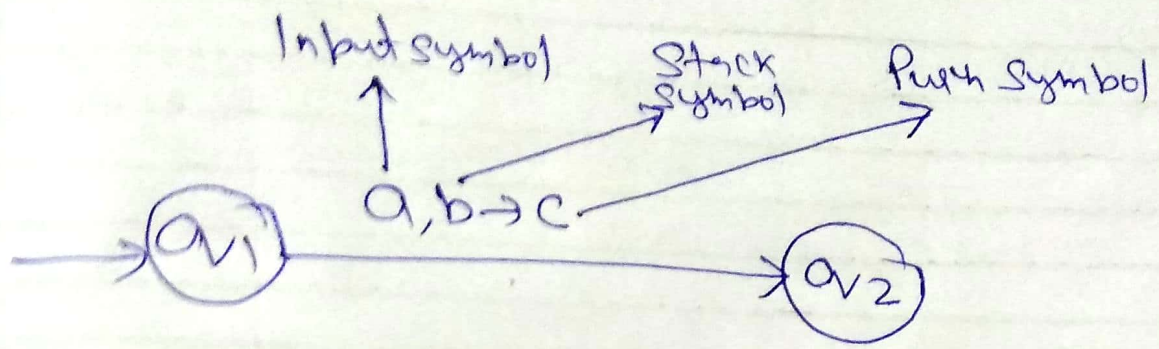 Input symbol
Stack
symbol
Push symbol
a, b → c
q1
q2